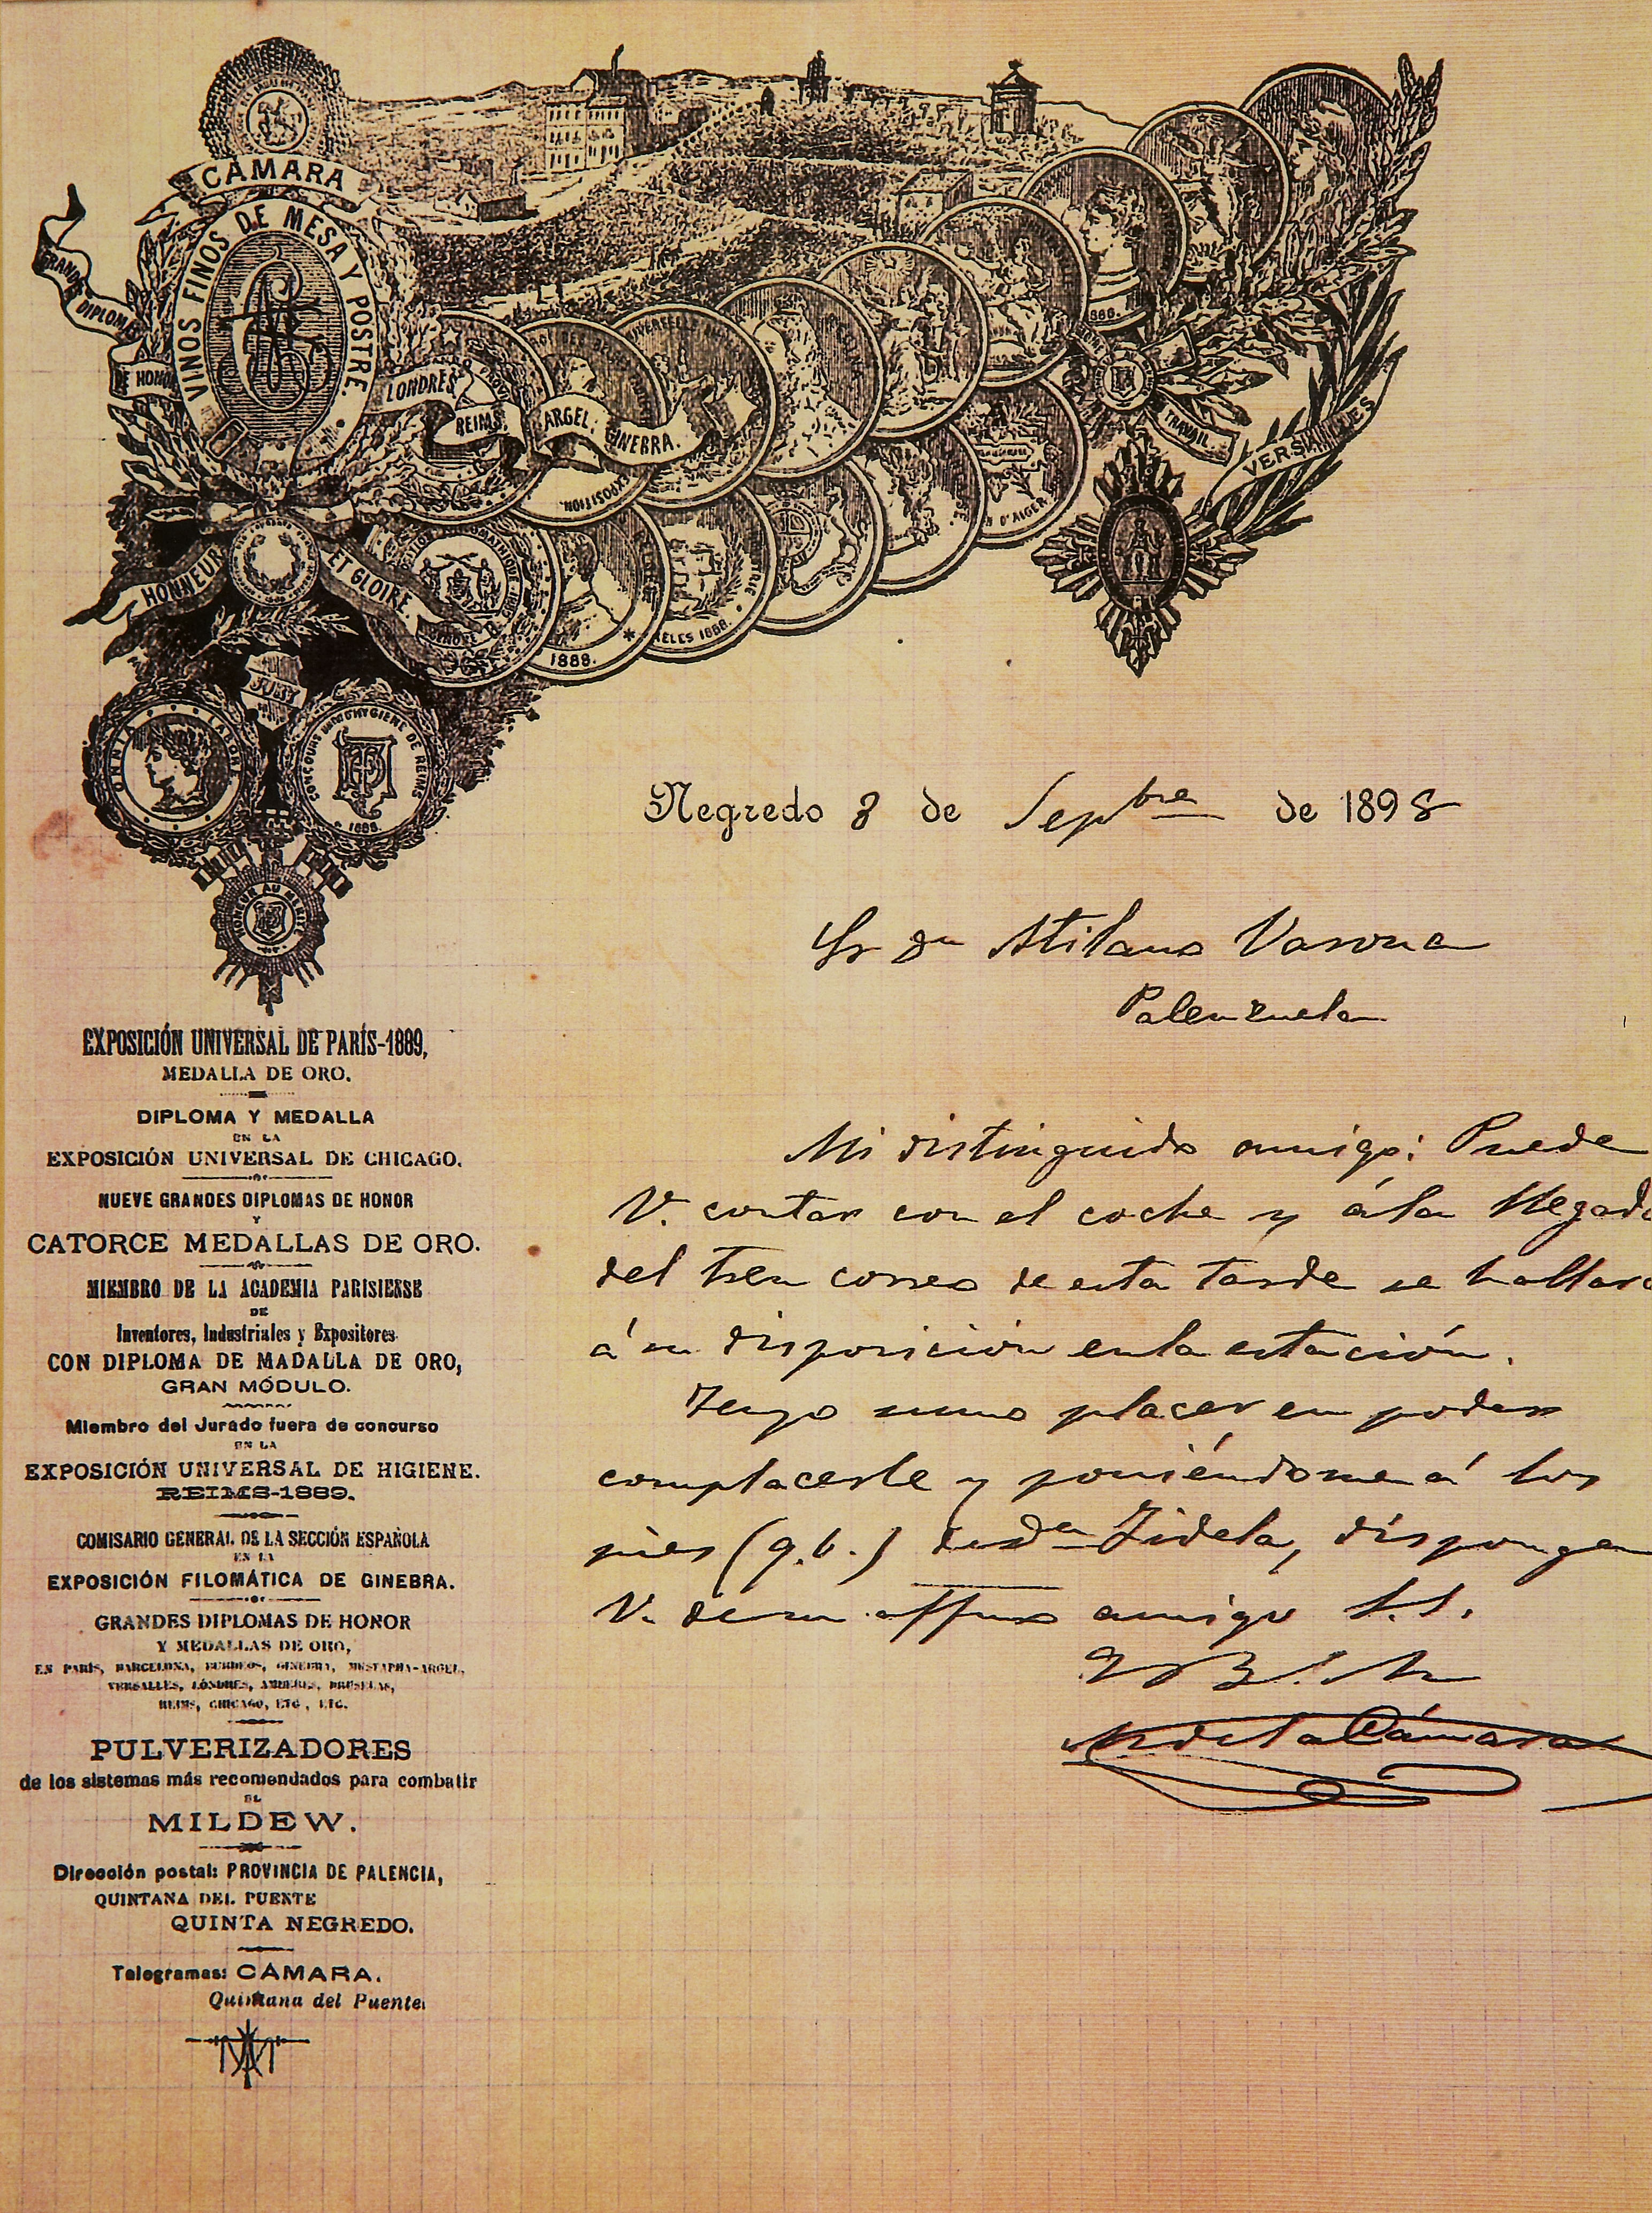 CÁMARA
VINOS FINOS DE MESA Y POSTRE.
GRANDS DIPLOMES
DE HONOR
LONDRES
REIMS
ARGEL,
GINEBRA.
EXPOSITION
TRAVAIL
VERSAILLES
HONNEUR
ET GLOIRE
1889.
1888.
JURY
OMNIA LABORE
CONCOURS D'HYGIENE DE REIMS
HONNEUR AU MERITE
Negredo 8 de Septbre de 1898
Sr Dn Atilano Varona
Palenzuela
Mi distinguido amigo: Puede
V. contar con el coche y á la llegada
del tren correo de esta tarde se hallará
á su disposición en la estación.
Tengo sumo placer en poder
complacerle y poniéndome á los
pies (q.b.) de su Da Fidela, disponga
V. de su affmo amigo S.S.
Q B S. M
N de la Cámara
EXPOSICIÓN UNIVERSAL DE PARÍS-1889,
MEDALLA DE ORO.
DIPLOMA Y MEDALLA
EN LA
EXPOSICIÓN UNIVERSAL DE CHICAGO.
NUEVE GRANDES DIPLOMAS DE HONOR
Y
CATORCE MEDALLAS DE ORO.
MIEMBRO DE LA ACADEMIA PARISIENSE
DE
Inventores, Industriales y Expositores
CON DIPLOMA DE MADALLA DE ORO,
GRAN MÓDULO.
Miembro del Jurado fuera de concurso
EN LA
EXPOSICIÓN UNIVERSAL DE HIGIENE.
REIMS-1889.
COMISARIO GENERAL DE LA SECCIÓN ESPAÑOLA
EN LA
EXPOSICIÓN FILOMÁTICA DE GINEBRA.
GRANDES DIPLOMAS DE HONOR
Y MEDALLAS DE ORO,
EN PARÍS, BARCELONA, BURDEOS, GINEBRA, MUSTAPHA-ARGEL,
VERSALLES, LÓNDRES, AMBERES, BRUSELAS,
REIMS, CHICAGO, ETC., ETC.
PULVERIZADORES
de los sistemas más recomendados para combatir
EL
MILDEW.
Dirección postal: PROVINCIA DE PALENCIA,
QUINTANA DEL PUENTE
QUINTA NEGREDO.
Telegramas: CÁMARA.
Quintana del Puente.